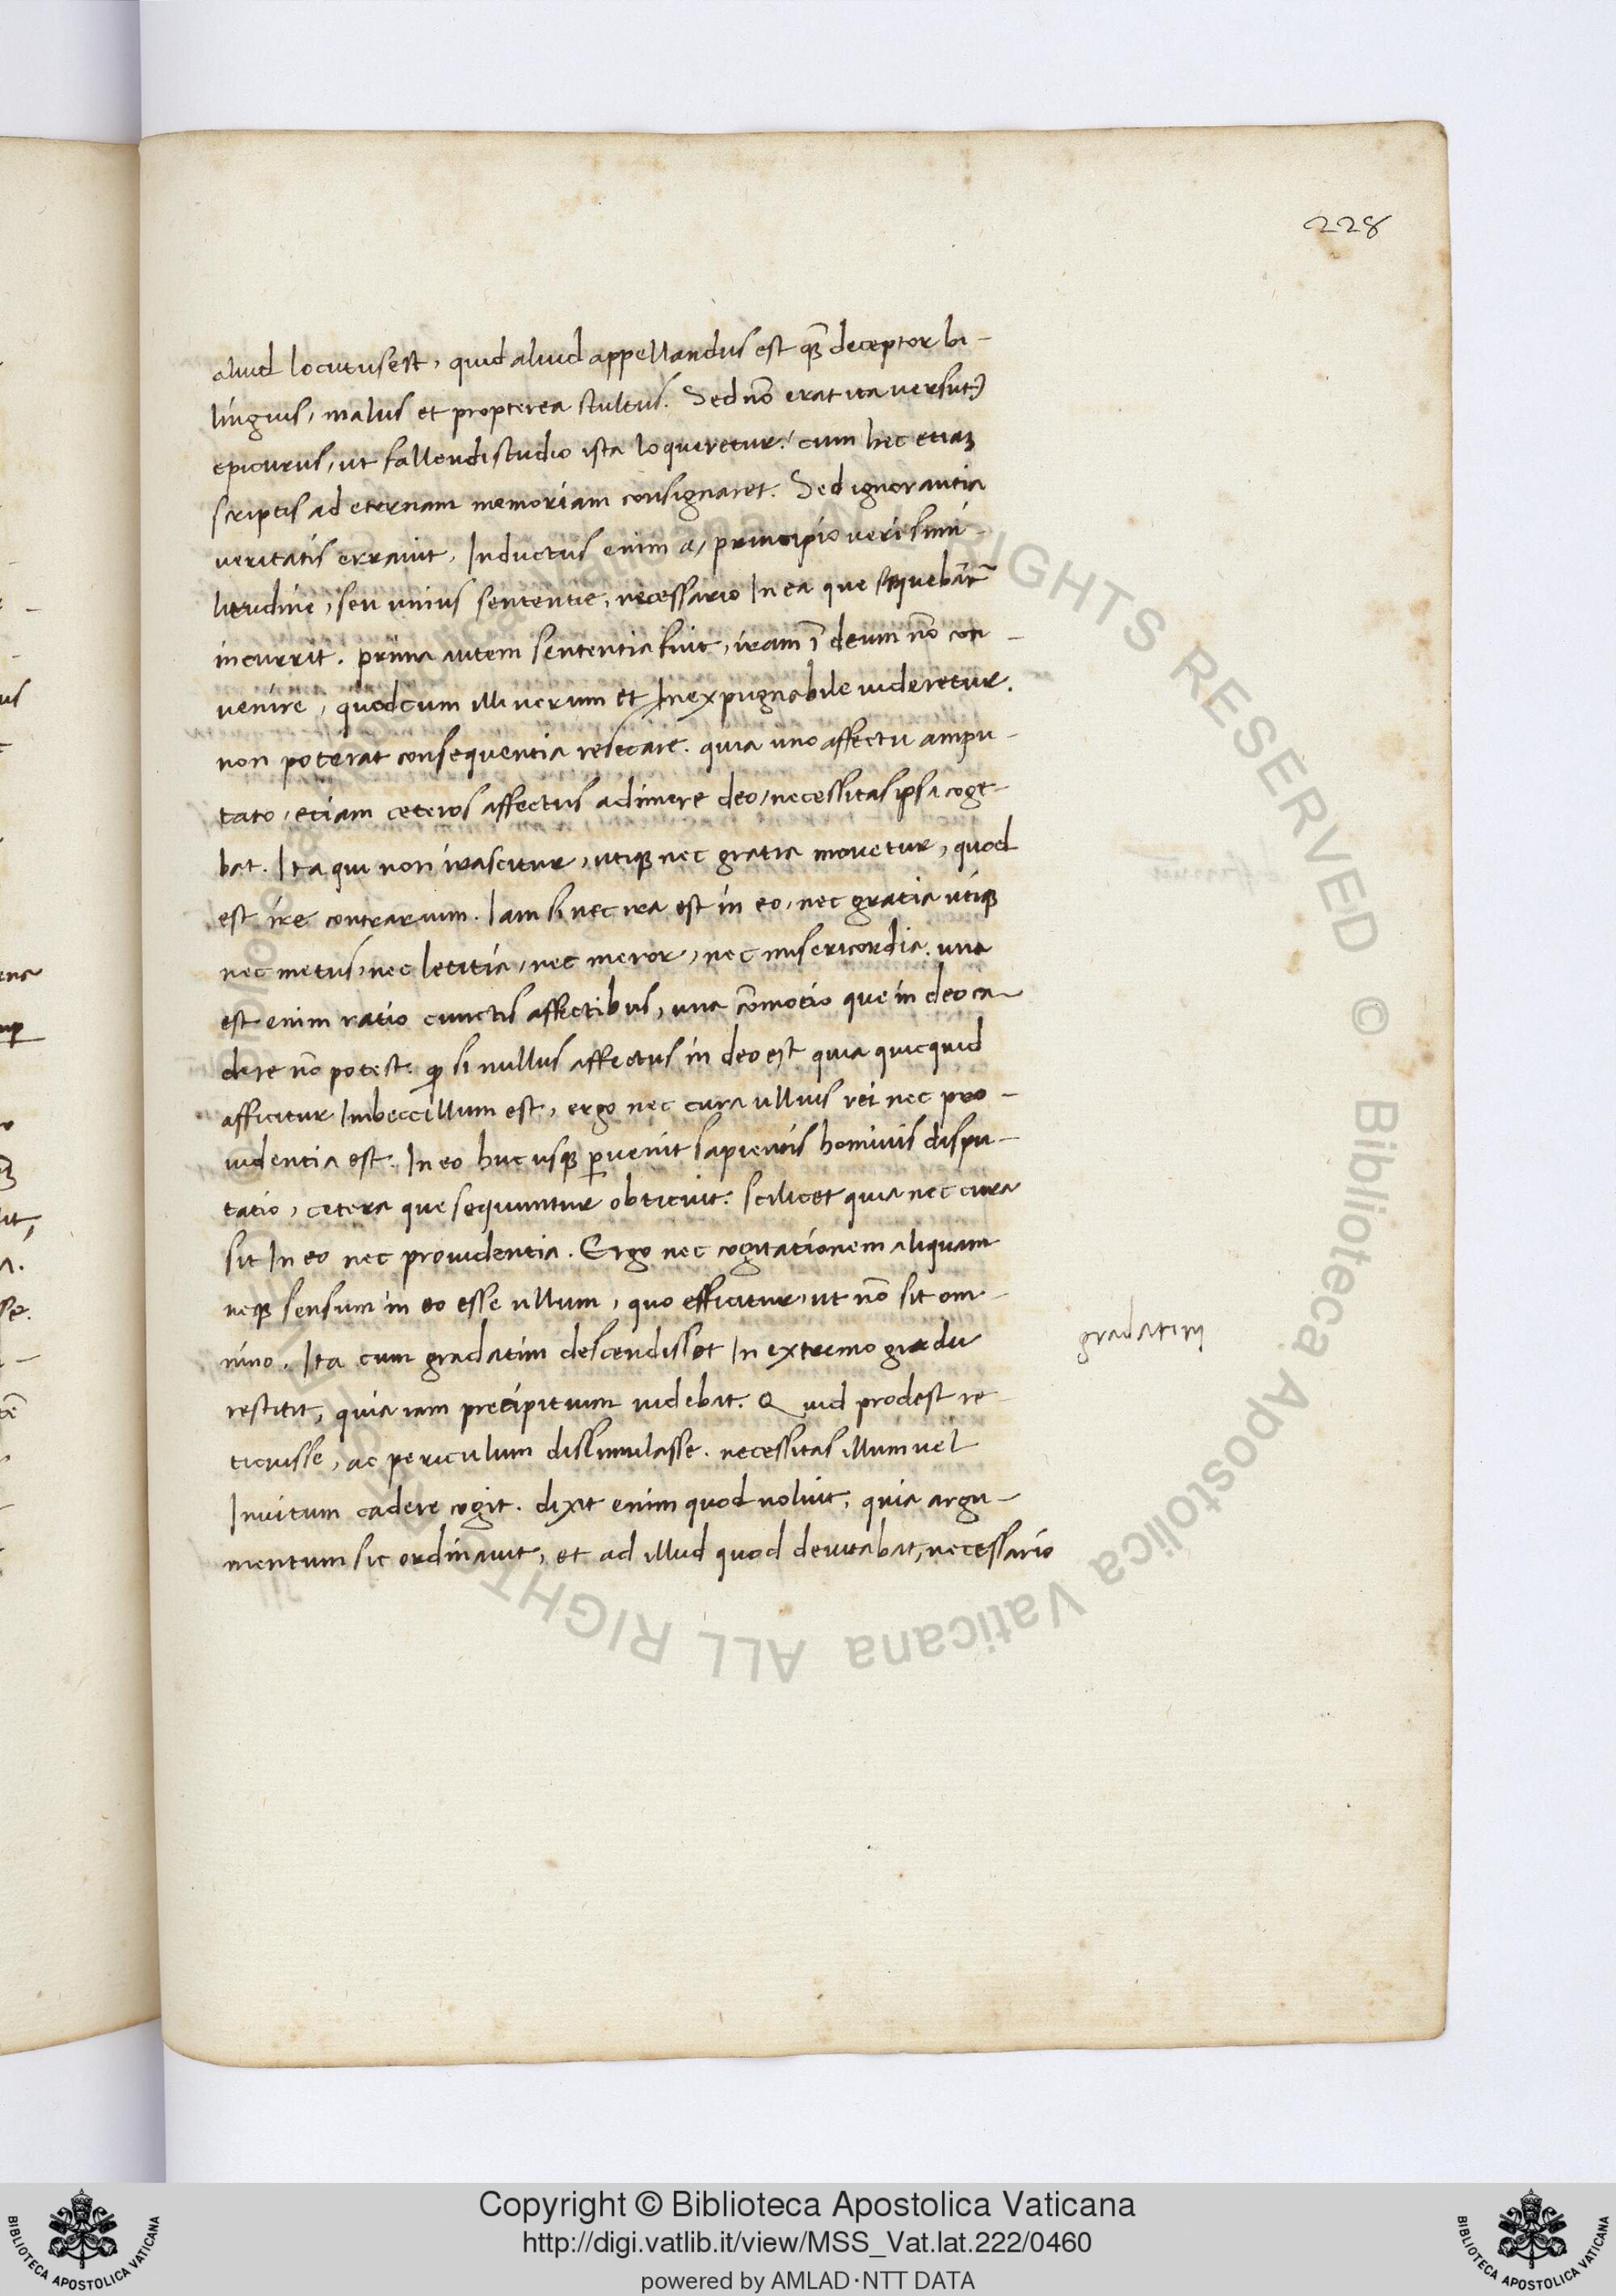 228
aliud locutus est, quid aliud appellandus est qȝ̄ deceptor bi-
linguis, malus et propterea stultus. Sed nō erat ita versutꝰ
epicurus, ut fallendi studio ista loqueretur. cum hec etiaꝫ
scriptis ad eternam memoriam consignaret. Sed ignorantia
veritatis erravit, Inductus enim a, principio verisimi-
litudine, seu unius sententie, necessario In ea que sequebāt᷑
incurrit. prima autem sententia fuit, iram ī deum nō con-
venire, quod cum illi verum et Inexpugnabile uideretur.
non poterat consequentia resecare. quia uno affectu ampu-
tato, etiam ceteros affectus adimere deo, necessitas ipsa coge-
bat. Ita qui non irascitur, utiqꝫ nec gratia mouetur, quod
est ire contrarium. Iam si nec ira est in eo, nec gratia utiqꝫ
nec metus, nec letitia, nec meror, nec misericordia. una
est enim ratio cunctis affectibus, una cōmotio que in deo ca-
dere nō potest. ꝙ si nullus affectus in deo est quia quicquid
afficitur Imbeccillum est, ergo nec cura ullius rei nec pro-
uidentia est. In eo huc usqꝫ ꝑuenit sapientis hominis dispu-
tatio, cetera que sequuntur obticuit. scilicet quia nec cura
sit In eo nec prouidentia. Ergo nec cogitationem aliquam
neqꝫ sensum in eo esse ullum, quo efficitur, ut nō sit om-
nino. Ita cum gradatim descendisset In extremo gradu
gradatim
restitit, quia iam precipitium uidebat. Quid prodest re-
ticuisse, ac periculum dissimulasse. necessitas illum vel
Inuitum cadere cogit. dixit enim quod noluit, quia argu-
mentum sic ordinauit, et ad illud quod deuitabat, necessario
© Biblioteca Apostolica Vaticana ALL RIGHTS RESERVED
Copyright © Biblioteca Apostolica Vaticana
http://digi.vatlib.it/view/MSS_Vat.lat.222/0460
powered by AMLAD·NTT DATA
BIBLIOTECA APOSTOLICA VATICANA
BIBLIOTECA APOSTOLICA VATICANA